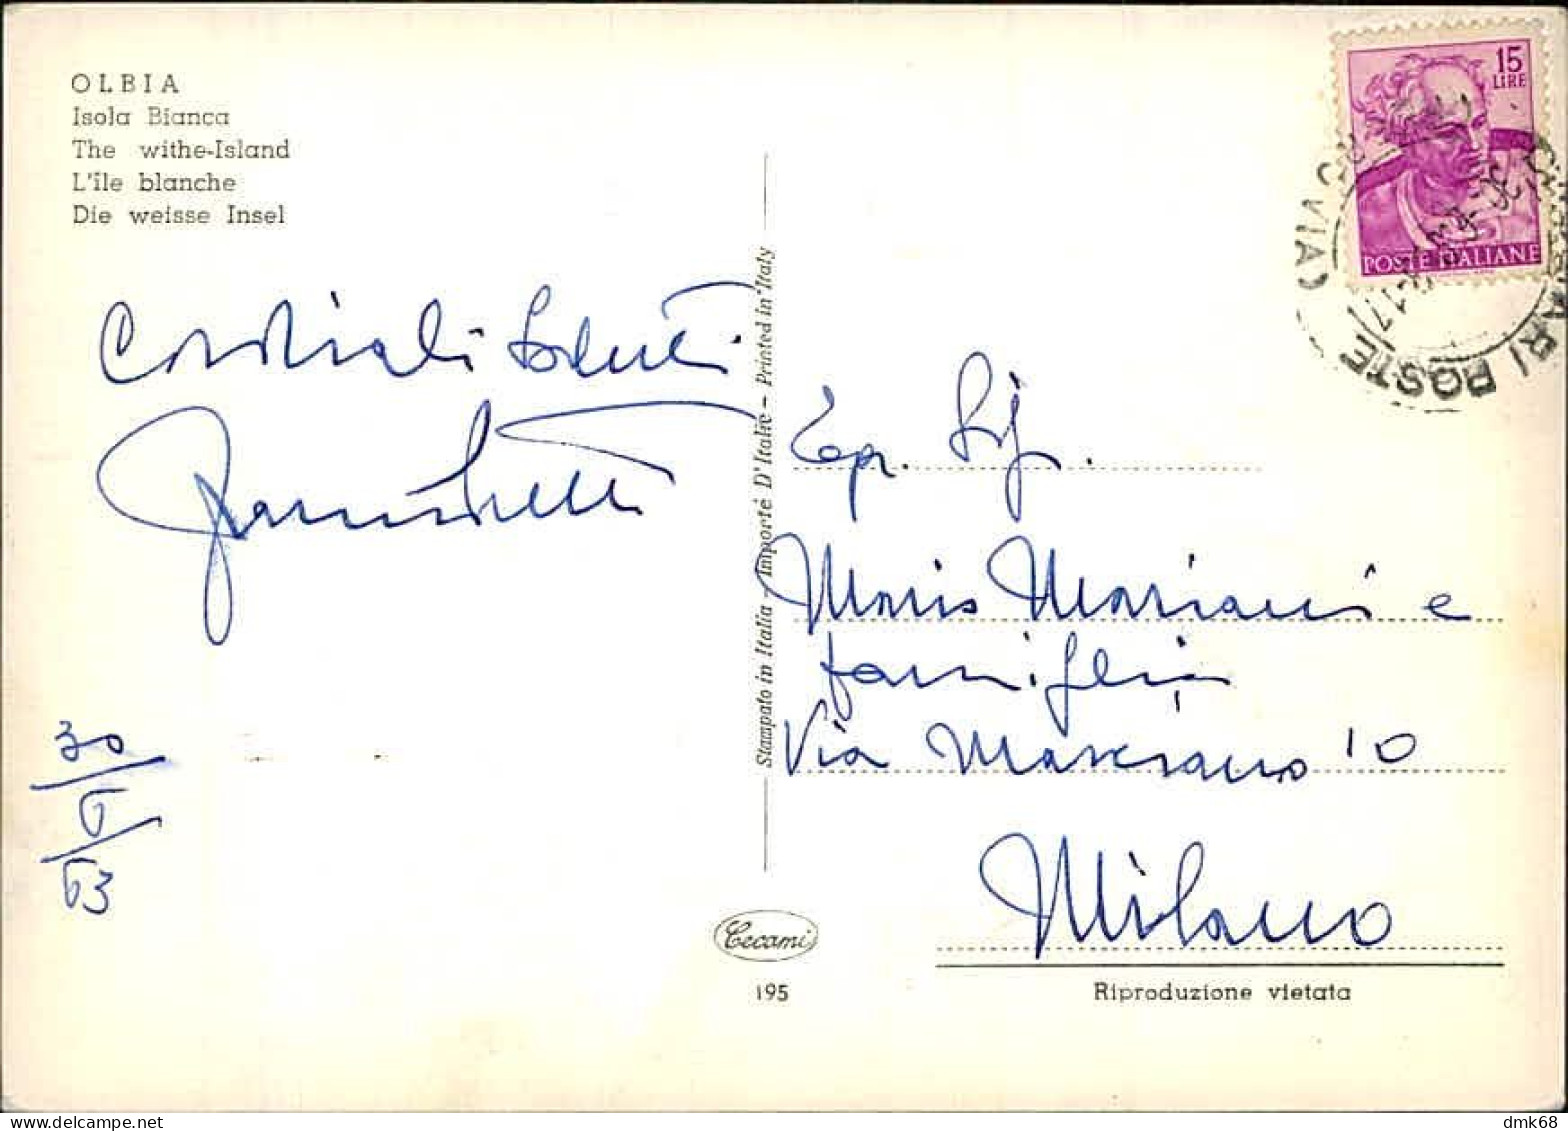 OLBIA
Isola Bianca
The withe-Island
L'île blanche
Die weisse Insel
15
LIRE
POSTE ITALIANE
RI POSTE
Cordiali Saluti
30
6
63
Stampato in Italia - Importé D'Italie - Printed in Italy
Egr. Sig.
Mario Mariani e
famiglia
Via Marciano 10
Milano
Cecami
195
Riproduzione vietata
dmk68